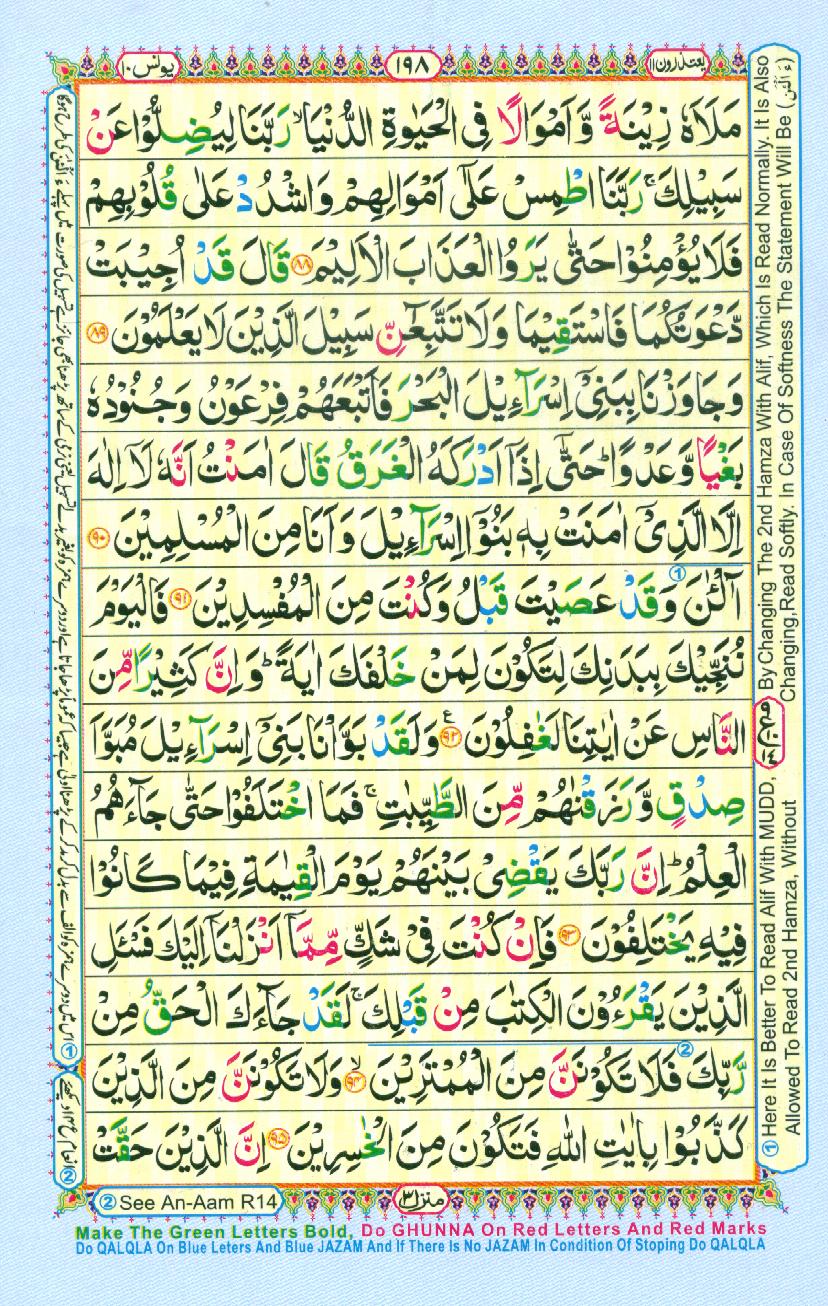 یعتذرون ۱۱
۱۹۸
یونس ۱۰
مَلَاَهٗ زِیْنَةً وَّاَمْوَالًا فِی الْحَیٰوةِ الدُّنْیَا ۙ رَبَّنَا لِیُضِلُّوْا عَنْ
سَبِیْلِكَ ۚ رَبَّنَا اطْمِسْ عَلٰۤی اَمْوَالِهِمْ وَاشْدُدْ عَلٰی قُلُوْبِهِمْ
فَلَا یُؤْمِنُوْا حَتّٰی یَرَوُا الْعَذَابَ الْاَلِیْمَ ﴿۸۸﴾ قَالَ قَدْ اُجِیْبَتْ
دَّعْوَتُكُمَا فَاسْتَقِیْمَا وَلَا تَتَّبِعٰٓنِّ سَبِیْلَ الَّذِیْنَ لَا یَعْلَمُوْنَ ﴿۸۹﴾
وَجَاوَزْنَا بِبَنِیْۤ اِسْرَآءِیْلَ الْبَحْرَ فَاَتْبَعَهُمْ فِرْعَوْنُ وَجُنُوْدُهٗ
بَغْیًا وَّعَدْوًا ؕ حَتّٰۤی اِذَاۤ اَدْرَكَهُ الْغَرَقُ قَالَ اٰمَنْتُ اَنَّهٗ لَاۤ اِلٰهَ
اِلَّا الَّذِیْۤ اٰمَنَتْ بِهٖ بَنُوْۤا اِسْرَآءِیْلَ وَاَنَا مِنَ الْمُسْلِمِیْنَ ﴿۹۰﴾
①
آٰلْـٰٔنَ وَقَدْ عَصَیْتَ قَبْلُ وَكُنْتَ مِنَ الْمُفْسِدِیْنَ ﴿۹۱﴾ فَالْیَوْمَ
نُنَجِّیْكَ بِبَدَنِكَ لِتَكُوْنَ لِمَنْ خَلْفَكَ اٰیَةً ؕ وَاِنَّ كَثِیْرًا مِّنَ
النَّاسِ عَنْ اٰیٰتِنَا لَغٰفِلُوْنَ ﴿۹۲﴾ ع وَلَقَدْ بَوَّاْنَا بَنِیْۤ اِسْرَآءِیْلَ مُبَوَّاَ
صِدْقٍ وَّرَزَقْنٰهُمْ مِّنَ الطَّیِّبٰتِ ۚ فَمَا اخْتَلَفُوْا حَتّٰی جَآءَهُمُ
الْعِلْمُ ؕ اِنَّ رَبَّكَ یَقْضِیْ بَیْنَهُمْ یَوْمَ الْقِیٰمَةِ فِیْمَا كَانُوْا
فِیْهِ یَخْتَلِفُوْنَ ﴿۹۳﴾ فَاِنْ كُنْتَ فِیْ شَكٍّ مِّمَّاۤ اَنْزَلْنَاۤ اِلَیْكَ فَسْـَٔلِ
الَّذِیْنَ یَقْرَءُوْنَ الْكِتٰبَ مِنْ قَبْلِكَ ۚ لَقَدْ جَآءَكَ الْحَقُّ مِنْ
②
رَّبِّكَ فَلَا تَكُوْنَنَّ مِنَ الْمُمْتَرِیْنَ ﴿۹۴﴾ ۙ وَلَا تَكُوْنَنَّ مِنَ الَّذِیْنَ
كَذَّبُوْا بِاٰیٰتِ اللّٰهِ فَتَكُوْنَ مِنَ الْخٰسِرِیْنَ ﴿۹۵﴾ اِنَّ الَّذِیْنَ حَقَّتْ
① Here It Is Better To Read Alif With MUDD, By Changing The 2nd Hamza With Alif, Which Is Read Normally. It Is Also
Allowed To Read 2nd Hamza, Without Changing,Read Softly. In Case Of Softness The Statement Will Be (ءَاَلْـٰٔنَ)
② See An-Aam R14
منزل ۳
Make The Green Letters Bold, Do GHUNNA On Red Letters And Red Marks
Do QALQLA On Blue Leters And Blue JAZAM And If There Is No JAZAM In Condition Of Stoping Do QALQLA